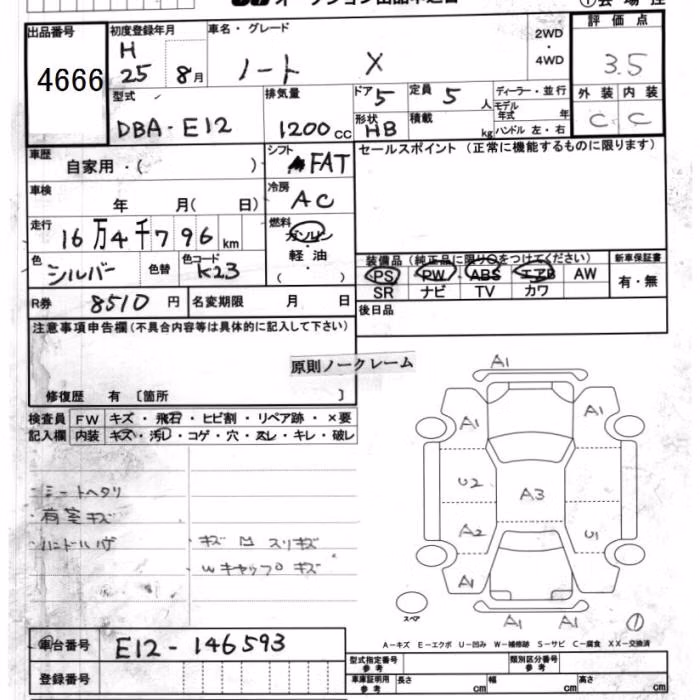 出品番号 初度登録年月 車名・グレード 2WD・4WD 評価点
4666 H 25 8月 ノート X 3.5
型式 排気量 ドア 5 定員 5 人 ディーラー・並行 外装 内装
DBA-E12 1200cc 形状 HB 積載 kg モデル年式 年 ハンドル 左・右 C C
車歴 自家用・( ) シフト FAT セールスポイント (正常に機能するものに限ります)
車検 年 月( 日) 冷房 AC
走行 16万4千796km 燃料 ガソリン 軽油 ( )
色 シルバー 色替 色コード K23
装備品 (純正品に限り○をつけてください) 新車保証書
PS PW ABS エアB AW 有・無
SR ナビ TV カワ
R券 8510円 名変期限 月 日 後日品
注意事項申告欄(不具合内容等は具体的に記入して下さい)
原則ノークレーム
修復歴 有 〔箇所 〕
検査員 FW キズ・飛石・ヒビ割・リペア跡・×要
記入欄 内装 キズ・汚レ・コゲ・穴・スレ・キレ・破レ
・シートヘタリ
・荷室キズ
・ハンドルハゲ ・キズ 凹 スリキズ
Wキャップキズ
A1
A1 A1
U2 A3
A2 U1
A1
A1 A1
スペア ①
A-キズ E-エクボ U-凹み W-補修跡 S-サビ C-腐食 XX-交換済
車台番号 E12-146593
型式指定番号 参考 類別区分番号 参考
登録番号 車庫証明用 参考 長さ cm 幅 cm 高さ cm